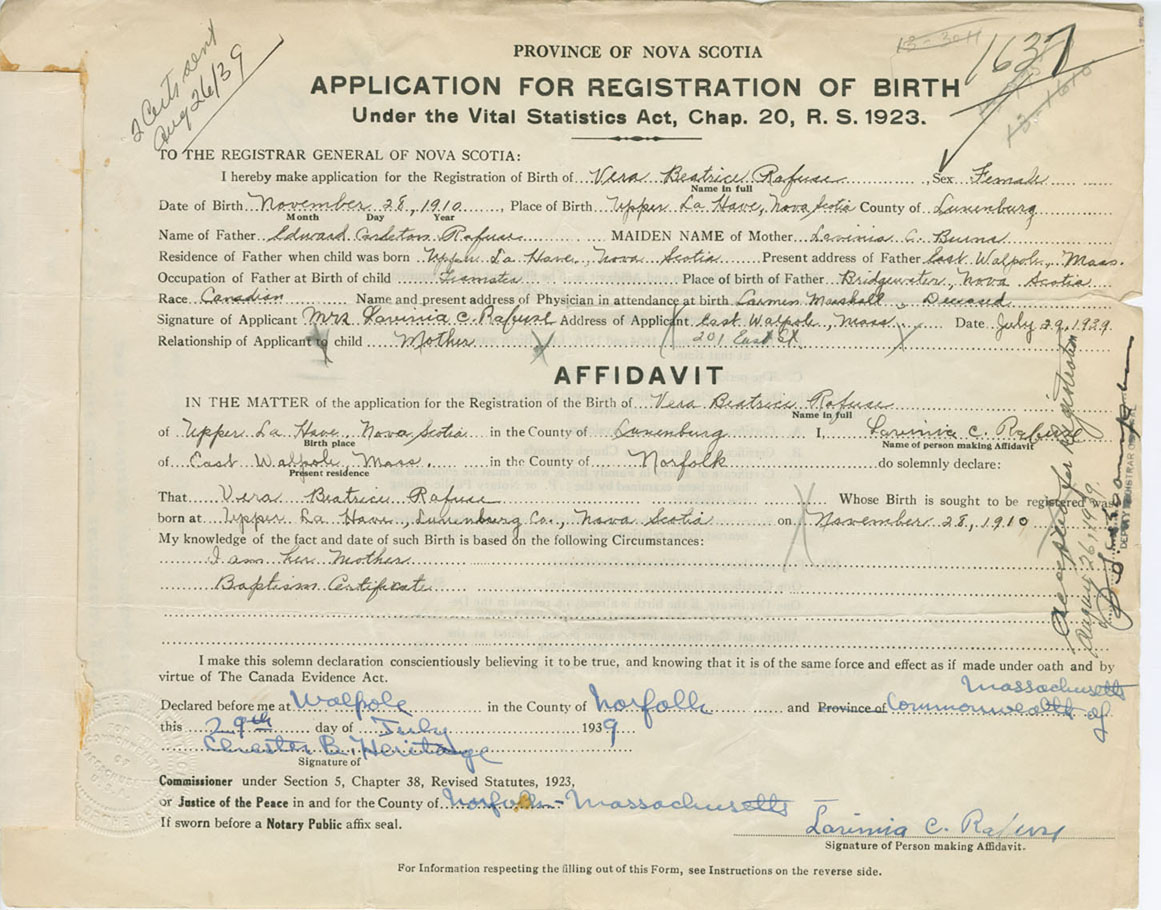 2 Certs sent
Aug 26/39
1637
PROVINCE OF NOVA SCOTIA
APPLICATION FOR REGISTRATION OF BIRTH
Under the Vital Statistics Act, Chap. 20, R. S. 1923.
TO THE REGISTRAR GENERAL OF NOVA SCOTIA:
I hereby make application for the Registration of Birth of Vera Beatrice Rafuse Sex Female
Name in full
Date of Birth November 28, 1910, Place of Birth Upper La Have, Nova Scotia County of Lunenburg
Month Day Year
Name of Father Edward Carleton Rafuse MAIDEN NAME of Mother Lavinia C. Burns
Residence of Father when child was born Upper La Have, Nova Scotia Present address of Father East Walpole, Mass.
Occupation of Father at Birth of child Teamster Place of birth of Father Bridgewater, Nova Scotia
Race Canadian Name and present address of Physician in attendance at birth Marshall Deceased
Signature of Applicant Mrs Lavinia C. Rafuse Address of Applicant East Walpole, Mass. Date July 29, 1939
Relationship of Applicant to child Mother 201 East St.
AFFIDAVIT
IN THE MATTER of the application for the Registration of the Birth of Vera Beatrice Rafuse
Name in full
of Upper La Have, Nova Scotia in the County of Lunenburg I, Lavinia C. Rafuse
Birth place Name of person making Affidavit
of East Walpole, Mass. in the County of Norfolk do solemnly declare:
Present residence
That Vera Beatrice Rafuse Whose Birth is sought to be registered was
born at Upper La Have, Lunenburg Co., Nova Scotia on November 28, 1910
My knowledge of the fact and date of such Birth is based on the following Circumstances:
I am her Mother
Baptism Certificate
Accepted for Registration
DEPUTY REGISTRAR
I make this solemn declaration conscientiously believing it to be true, and knowing that it is of the same force and effect as if made under oath and by
virtue of The Canada Evidence Act.
Massachusetts
Declared before me at Walpole in the County of Norfolk and Province of Commonwealth of
this 29th day of July 1939
Chester B. Heritage
Signature of
Commissioner under Section 5, Chapter 38, Revised Statutes, 1923,
or Justice of the Peace in and for the County of Norfolk - Massachusetts
If sworn before a Notary Public affix seal.
Lavinia C. Rafuse
Signature of Person making Affidavit.
For Information respecting the filling out of this Form, see Instructions on the reverse side.